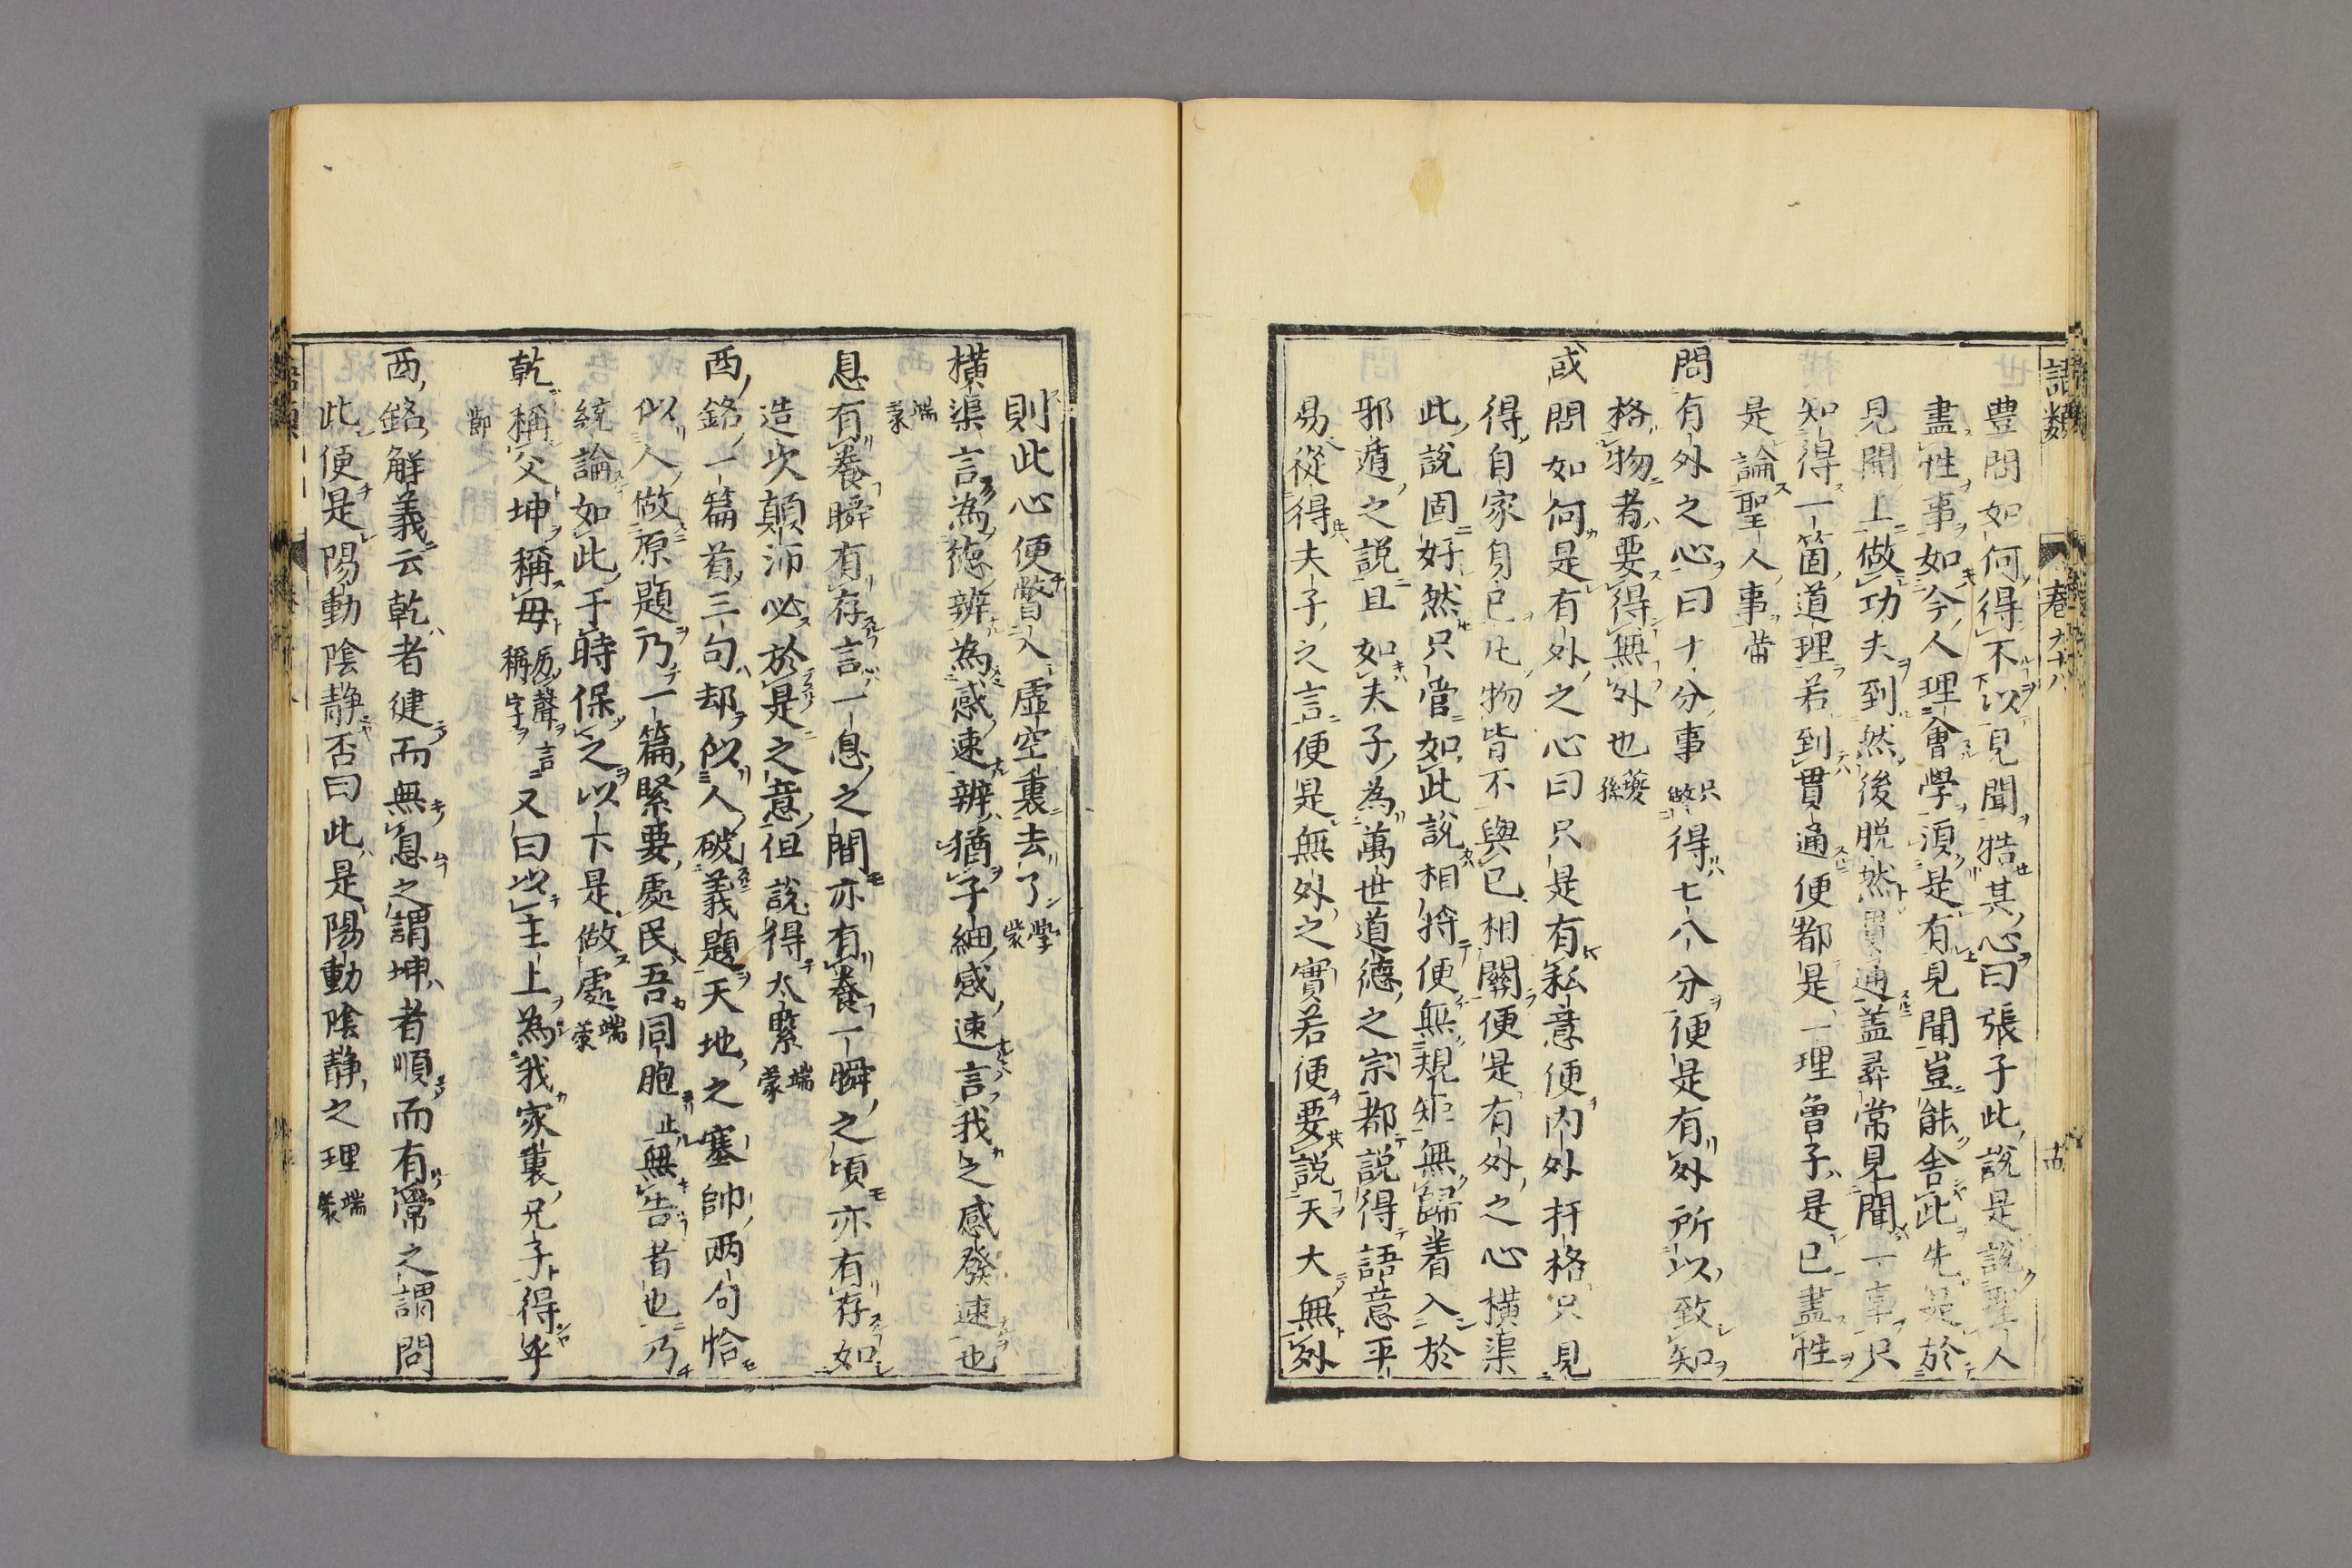 語類 卷九十八 十四
豊問如何得不以見聞牿其心曰張子此說是說聖人
盡性事如今人理會學須是有見聞豈能舍此先是於
見聞上做功夫到然後脫然貫通蓋尋常見聞一事只
知得一箇道理若到貫通便都是一理曾子是已盡性
是論聖人事 㽦
問有外之心曰十分事只做得七八分便是有外所以致知
格物者要得無外也 夔孫
或問如何是有外之心曰只是有私意便內外扞格只見
得自家身己凡物皆不與己相關便是有外之心橫渠
此說固好然只管如此說相將便無規矩無歸着入於
邪遁之說且如夫子為萬世道德之宗都說得語意平
易從得夫子之言便是無外之實若便要說天大無外
則此心便瞥入虛空裏去了 學蒙
橫渠言為德辨為感速辨猶子細感速言我之感發速也
端蒙
息有養瞬有存言一息之間亦有養一瞬之頃亦有存如
造次顛沛必於是之意但說得太緊 端蒙
西銘一篇首三句却似人破義題天地之塞帥兩句恰
似人做原題乃一篇緊要處民吾同胞止無告者也乃
統論如此于時保之以下是做處 端蒙
乾稱父坤稱母厉聲言稱字又曰以主上為我家裏兄子得乎
節
西銘解義云乾者健而無息之謂坤者順而有常之謂問
此便是陽動陰静否曰此是陽動陰静之理 端蒙